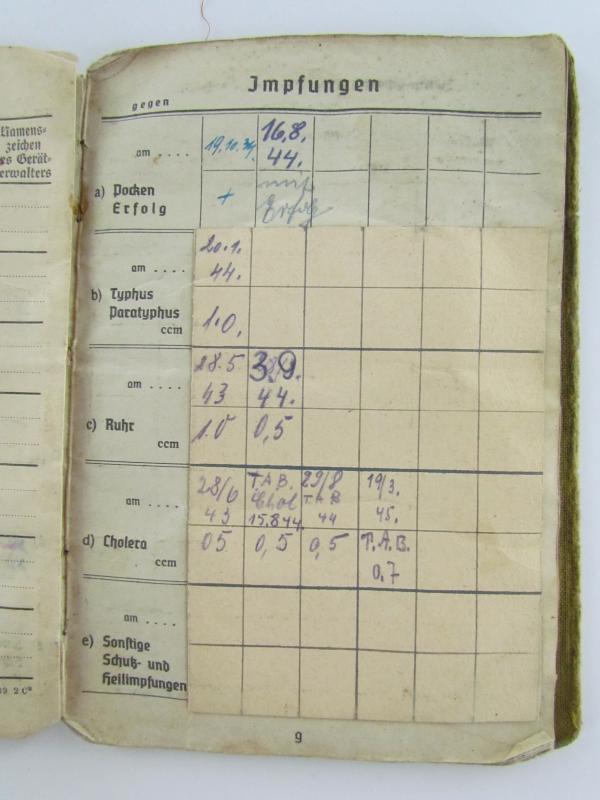 Namens-
zeichen
des Gerät-
verwalters
Impfungen
gegen
am . . . .
19.10.39.
16.8.
44.
a) Pocken
Erfolg
+
mit
Erfolg
am . . . .
20.1.
44.
b) Typhus
Paratyphus
ccm
1.0.
am . . . .
28.5
43
3.9.
44.
c) Ruhr
ccm
1.0
0,5
am . . . .
28/6
43
T.A.B.
Chol
15.8.44.
29/8
T.A.B
44
19/3.
45.
d) Cholera
ccm
05
0,5
0,5
T.A.B.
0.7
am . . . .
e) Sonstige
Schutz- und
Heilimpfungen
9